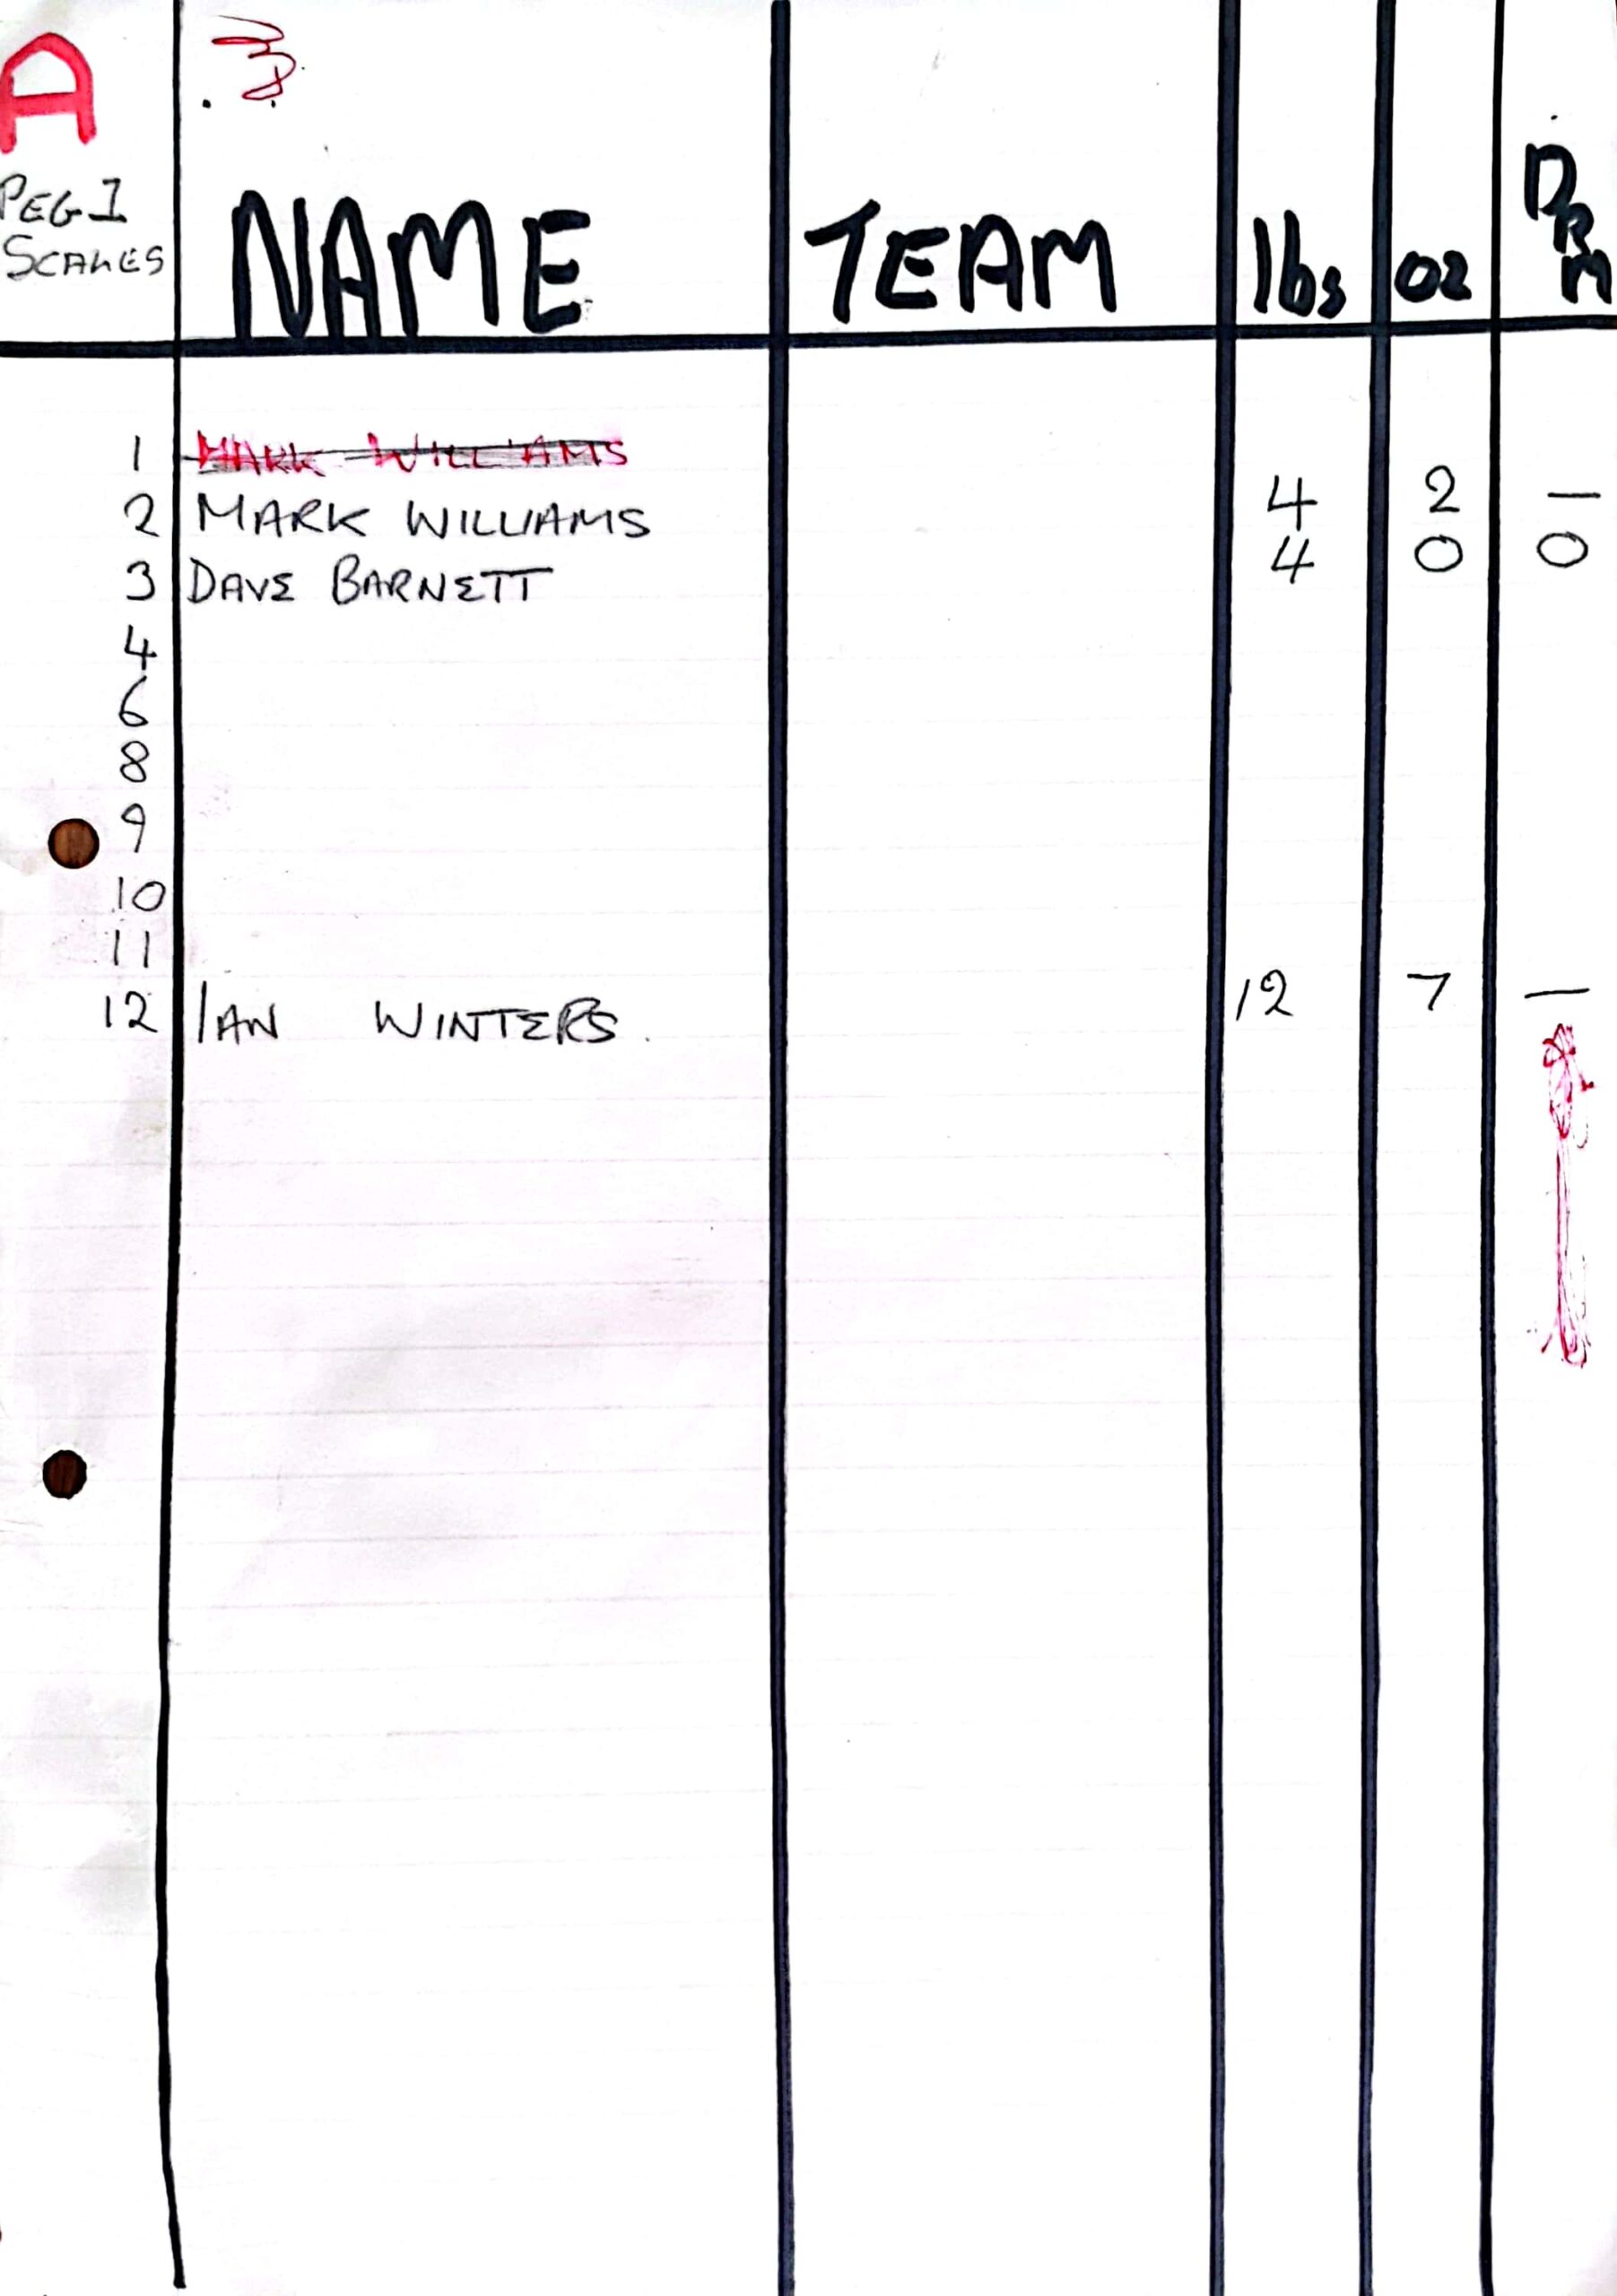 A
PEG 1
SCALES
NAME TEAM lbs oz DRM
1 MARK WILLIAMS
2 MARK WILLIAMS 4 2 —
3 DAVE BARNETT 4 0 0
4
6
8
9
10
11
12 IAN WINTERS. 12 7 —